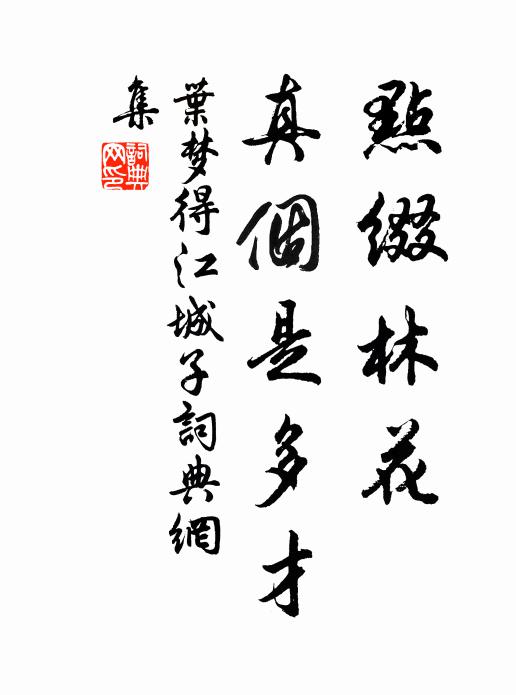 點綴林花
真個是多才
葉梦得江城子詞典網
集
詞典
网印